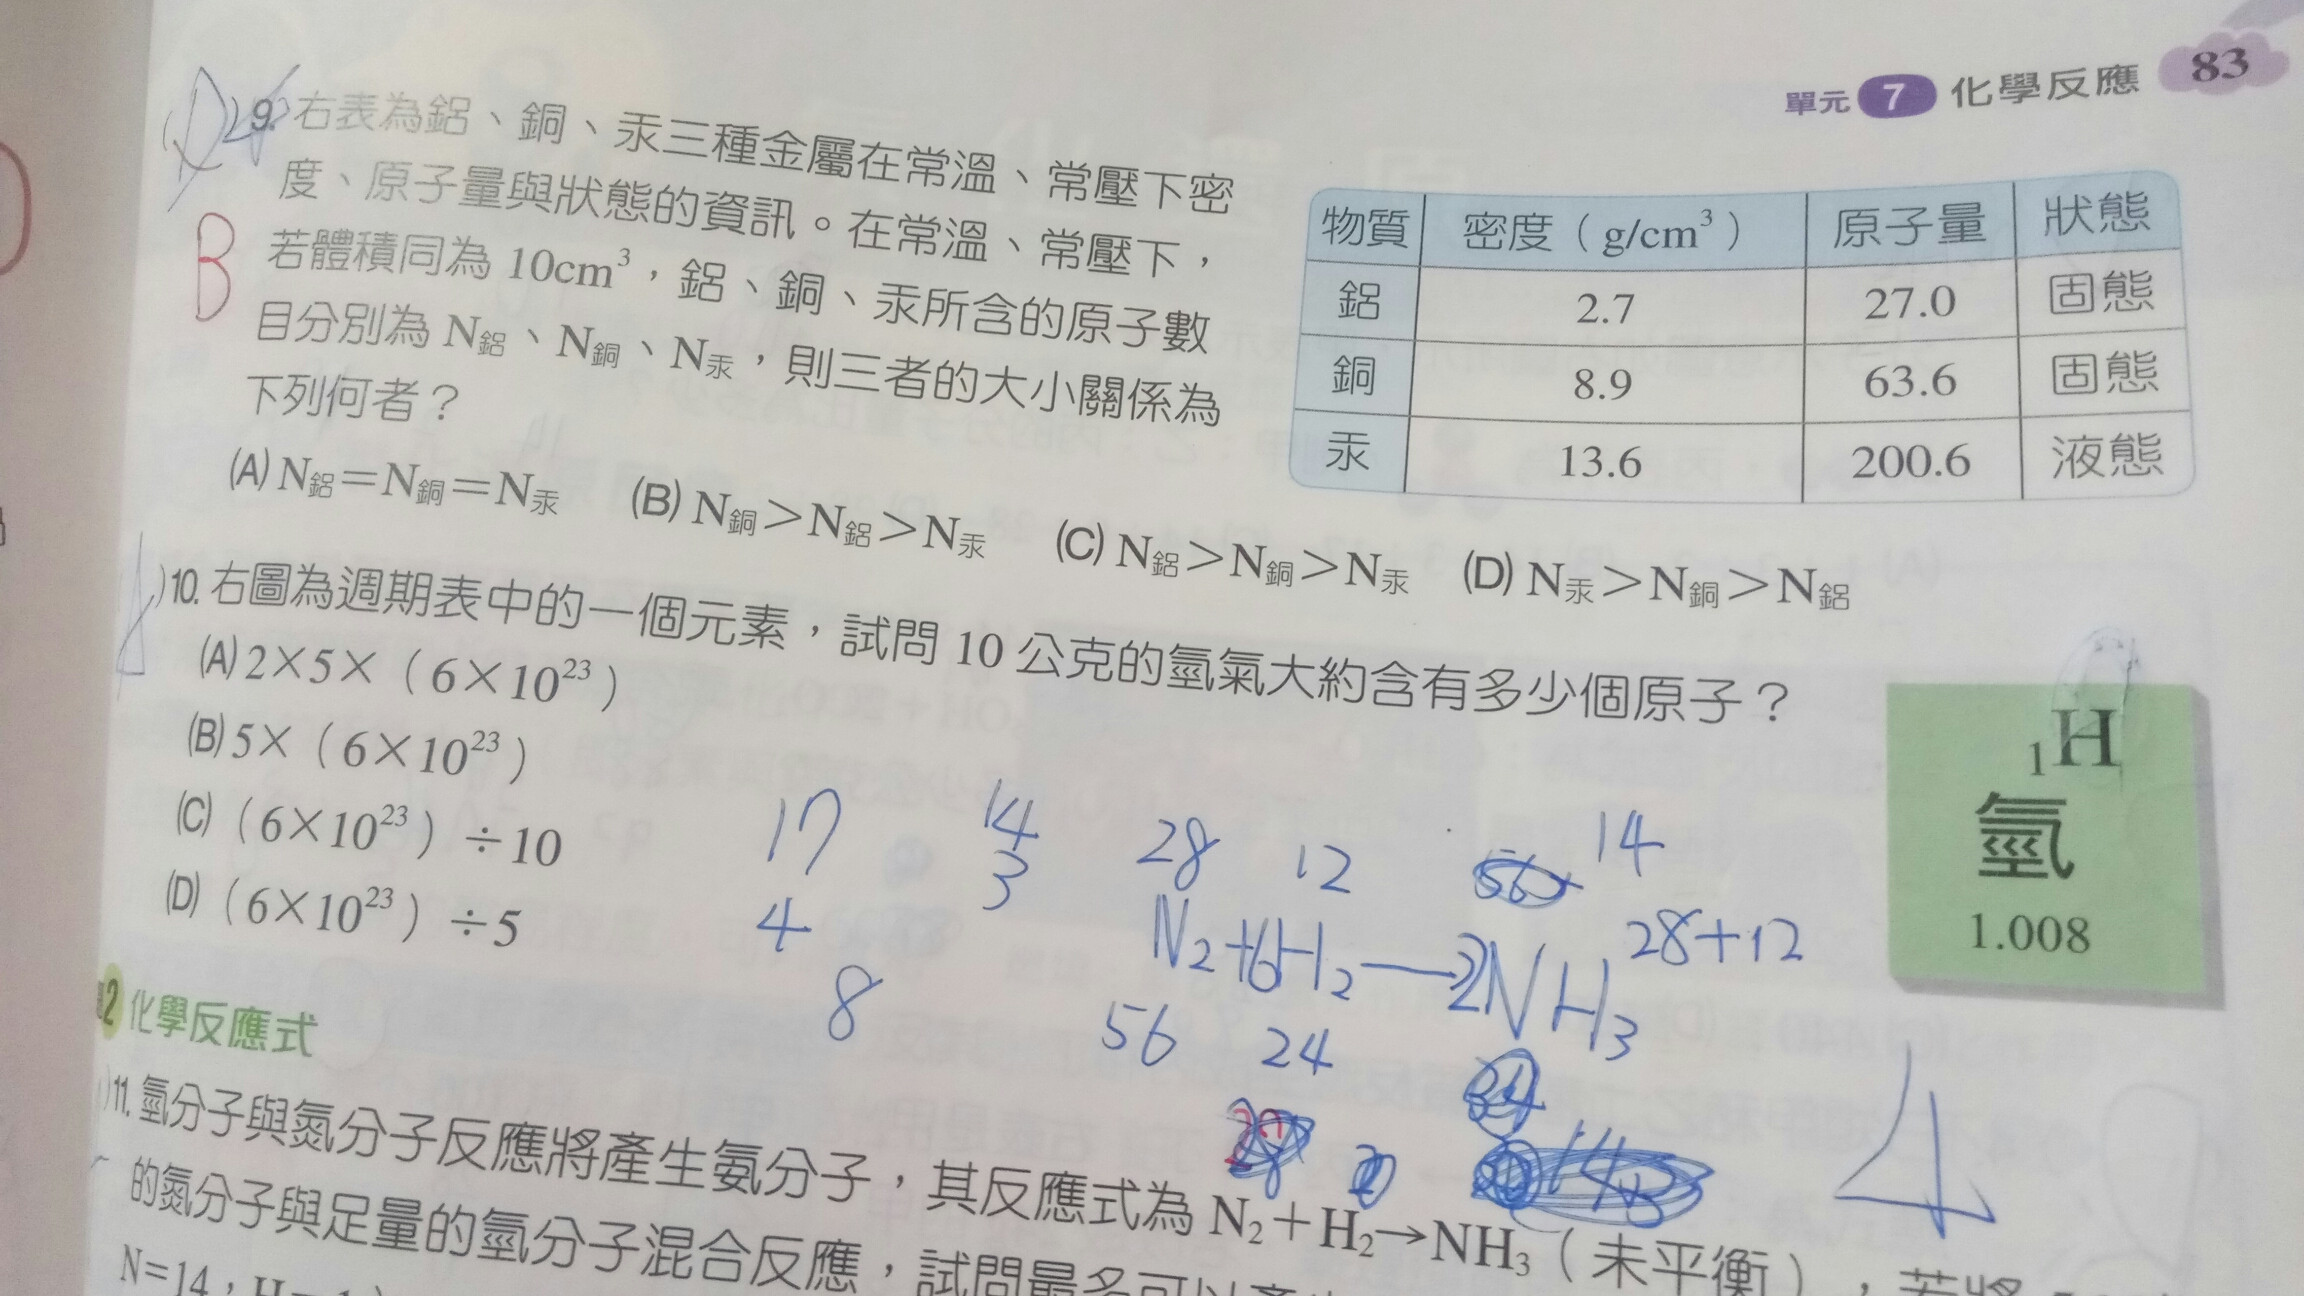 單元 7 化學反應 83
(D)9. 右表為鋁、銅、汞三種金屬在常溫、常壓下密
度、原子量與狀態的資訊。在常溫、常壓下，
B 若體積同為 10cm³，鋁、銅、汞所含的原子數
目分別為 N鋁、N銅、N汞，則三者的大小關係為
下列何者？
物質 密度（g/cm³） 原子量 狀態
鋁 2.7 27.0 固態
銅 8.9 63.6 固態
汞 13.6 200.6 液態
(A) N鋁＝N銅＝N汞 (B) N銅＞N鋁＞N汞 (C) N鋁＞N銅＞N汞 (D) N汞＞N銅＞N鋁
)10. 右圖為週期表中的一個元素，試問 10 公克的氫氣大約含有多少個原子？
(A) 2×5×（6×10²³）
(B) 5×（6×10²³）
(C)（6×10²³）÷10
(D)（6×10²³）÷5
₁H
氫
1.008
17 14 28 12 56 14
4 3 N₂+6H₂—2NH₃ 28+12
8 56 24
34
2 化學反應式
)11. 氫分子與氮分子反應將產生氨分子，其反應式為 N₂＋H₂→NH₃（未平衡），若將
的氮分子與足量的氫分子混合反應，試問最多可以產
N=14，H=1